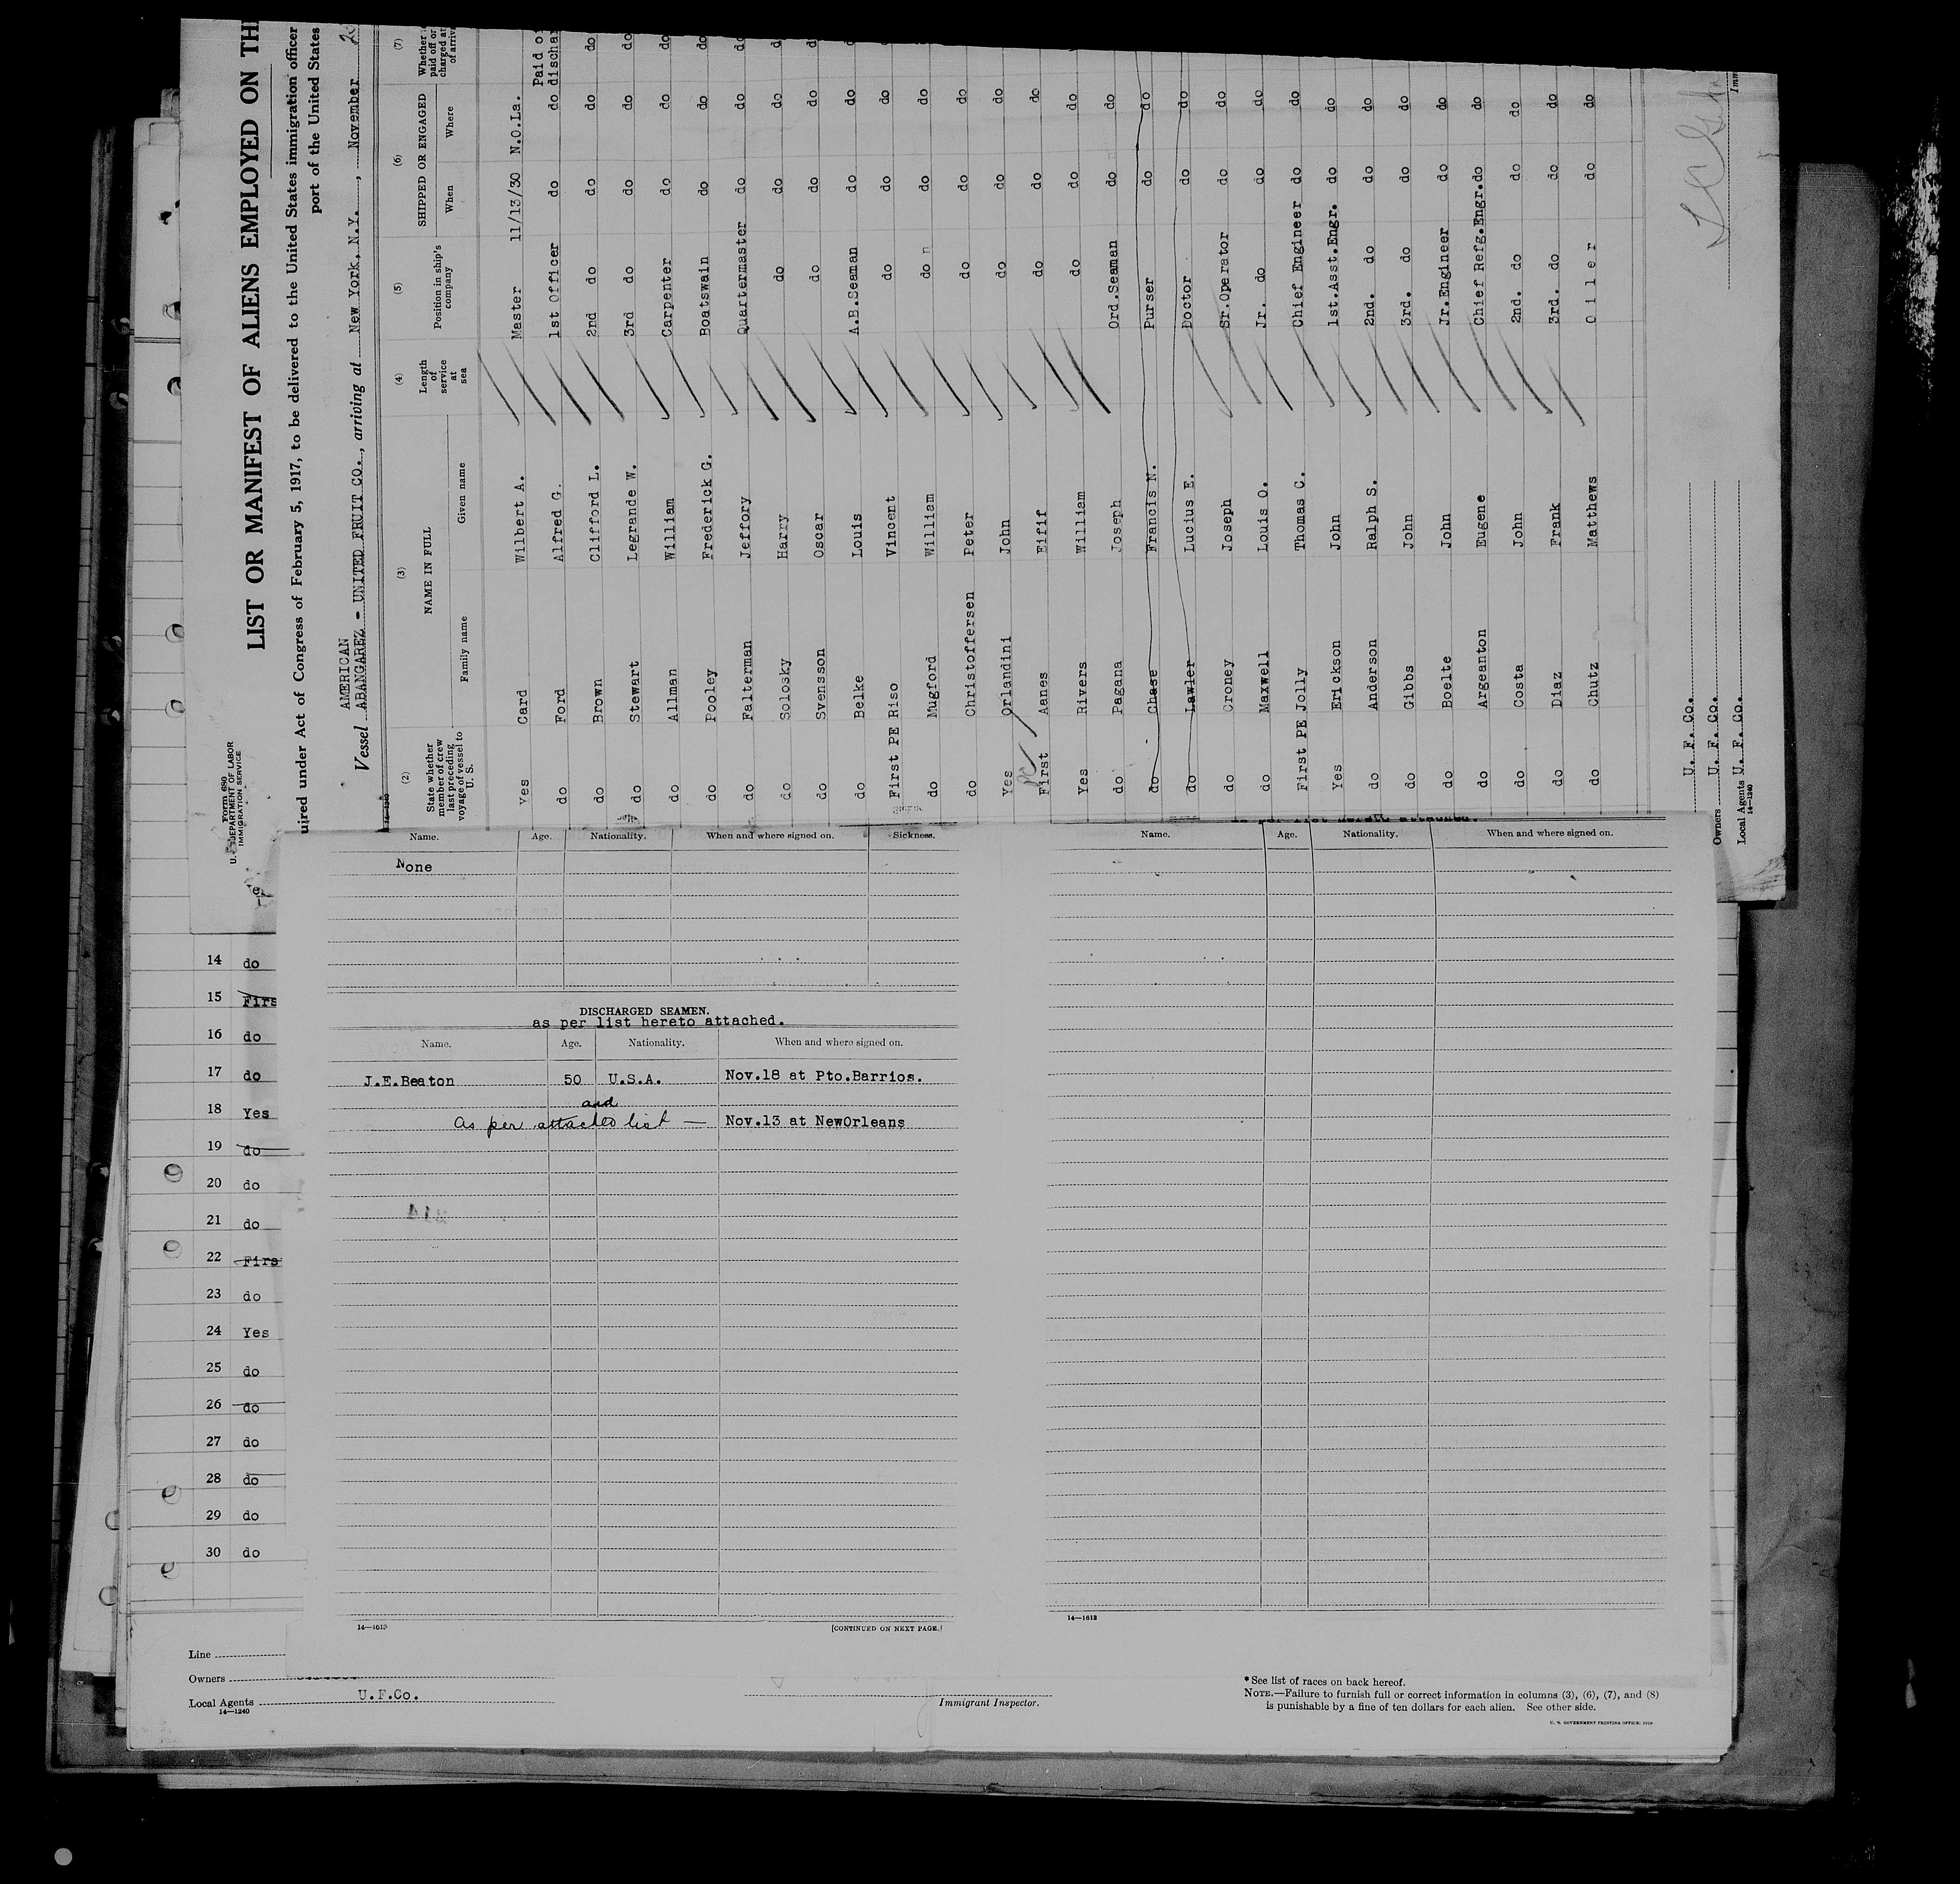 Form 680
U. S. DEPARTMENT OF LABOR
IMMIGRATION SERVICE
LIST OR MANIFEST OF ALIENS EMPLOYED ON TH
uired under Act of Congress of February 5, 1917, to be delivered to the United States immigration officer
port of the United States
AMERICAN
Vessel ABANGAREZ - UNITED FRUIT CO., arriving at New York, N.Y., November
(2) (3) (4) (5) (6) (7)
State whether member of crew last preceding voyage of vessel to U. S.
NAME IN FULL
Family name Given name
Length of service at sea
Position in ship's company
SHIPPED OR ENGAGED
When Where
Yes Card Wilbert A. Master 11/13/30 N.O.La.
do Ford Alfred G. 1st Officer do do
do Brown Clifford L. 2nd do do do do
do Stewart Legrande W. 3rd do do do do
do Allman William Carpenter do do do
do Pooley Frederick G. Boatswain do do do
do Falterman Jeffory Quartermaster do do
do Solosky Harry do do do
do Svensson Oscar do do do
do Belke Louis A.B.Seaman do do
First PE Riso Vincent do do do
do Mugford William do do do
do Christoffersen Peter do do do
Yes Orlandini John do do do
First Aanes Eifif do do do
Yes Rivers William do do do
do Pagana Joseph Ord.Seaman do do
do Chase Francis N. Purser do do
do Lawler Lucius E. Doctor do do
do Croney Joseph Sr.Operator do do
do Maxwell Louis O. Jr. do do do
First PE Jolly Thomas C. Chief Engineer do do
Yes Erickson John 1st.Asst.Engr. do do
do Anderson Ralph S. 2nd. do do do
do Gibbs John 3rd. do do do
do Boelte John Jr.Engineer do do
do Argeanton Eugene Chief Refg.Engr.do do
do Costa John 2nd. do do do
do Diaz Frank 3rd. do do do
do Chutz Matthews Oiler do do
U. F. Co.
Owners U. F. Co.
Local Agents U. F. Co.
14—1240
Name. Age. Nationality. When and where signed on. Sickness.
None
DISCHARGED SEAMEN.
as per list hereto attached.
Name. Age. Nationality. When and where signed on.
J.E.Beaton 50 U.S.A. Nov.18 at Pto.Barrios.
and
as per attached list — Nov.13 at NewOrleans
14—1613
[CONTINUED ON NEXT PAGE.]
Name. Age. Nationality. When and where signed on.
14—1613
14 do
15 Firs
16 do
17 do
18 Yes
19 do
20 do
21 do
22 Firs
23 do
24 Yes
25 do
26 do
27 do
28 do
29 do
30 do
Line
Owners
Local Agents U.F.Co.
14—1240
Immigrant Inspector.
*See list of races on back hereof.
NOTE.—Failure to furnish full or correct information in columns (3), (6), (7), and (8)
is punishable by a fine of ten dollars for each alien. See other side.